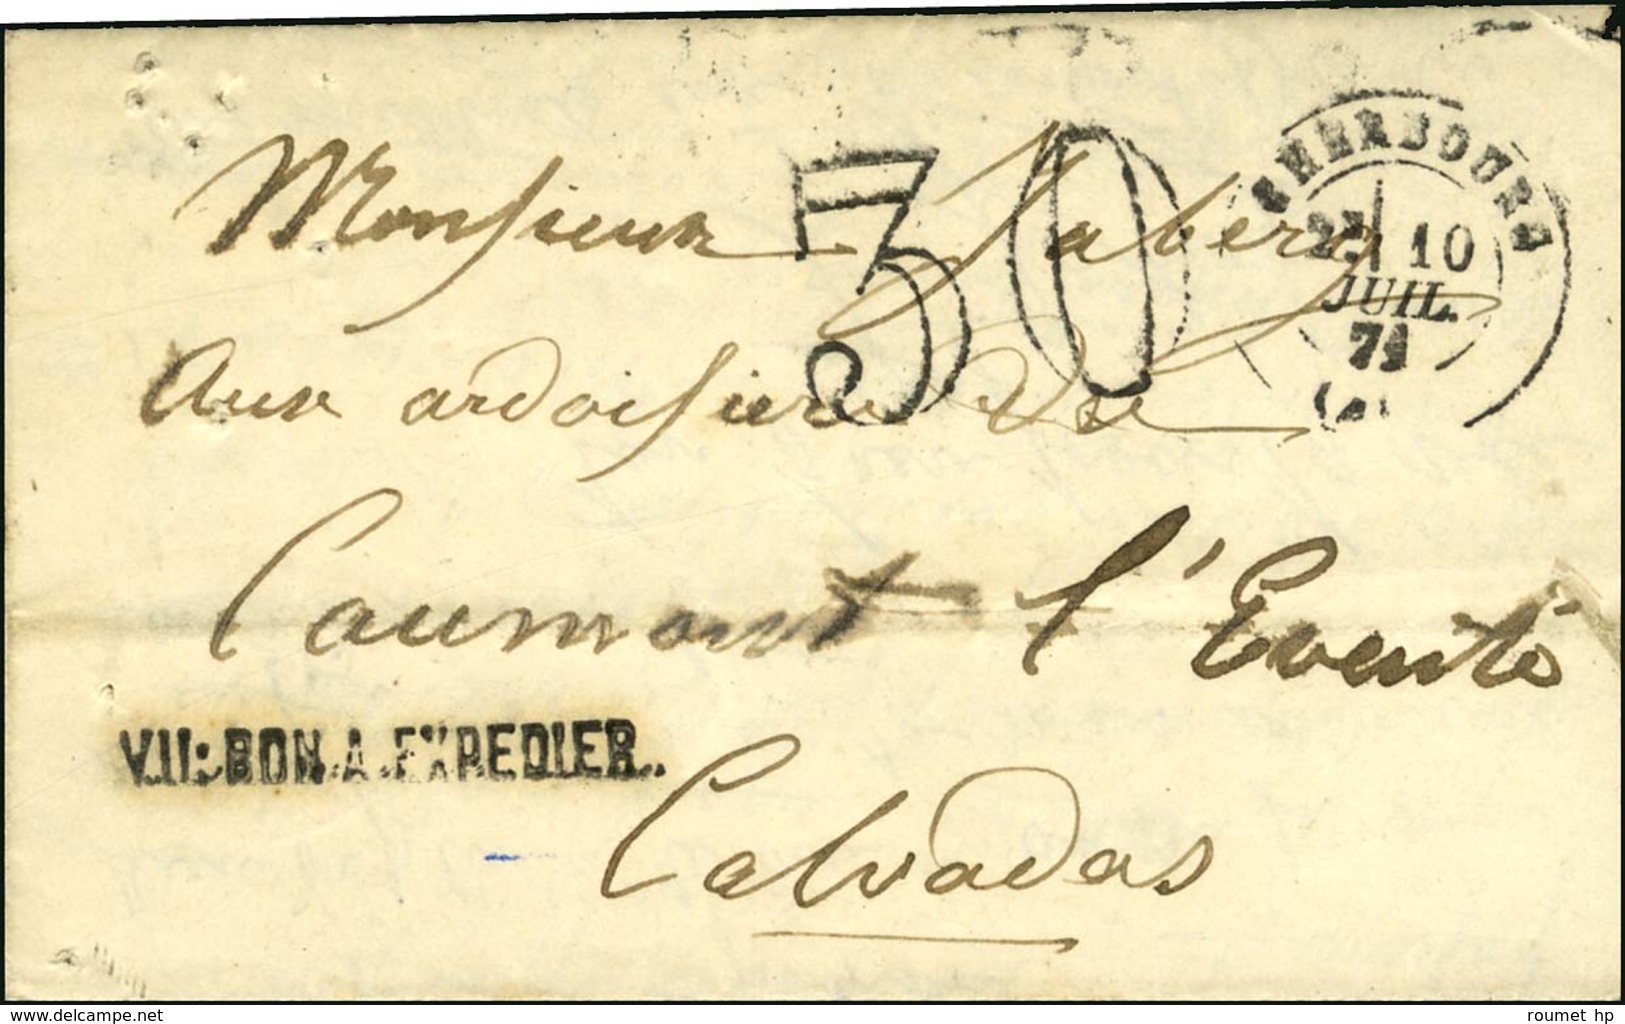 Monsieur Jabere
30
CHERBOURG
2E 10
JUIL.
71
Aux ardoisière De
Caumont l'Eventé
V.U:BON.A.EXPEDIER..
Calvados
delcampe.net
roumet hp